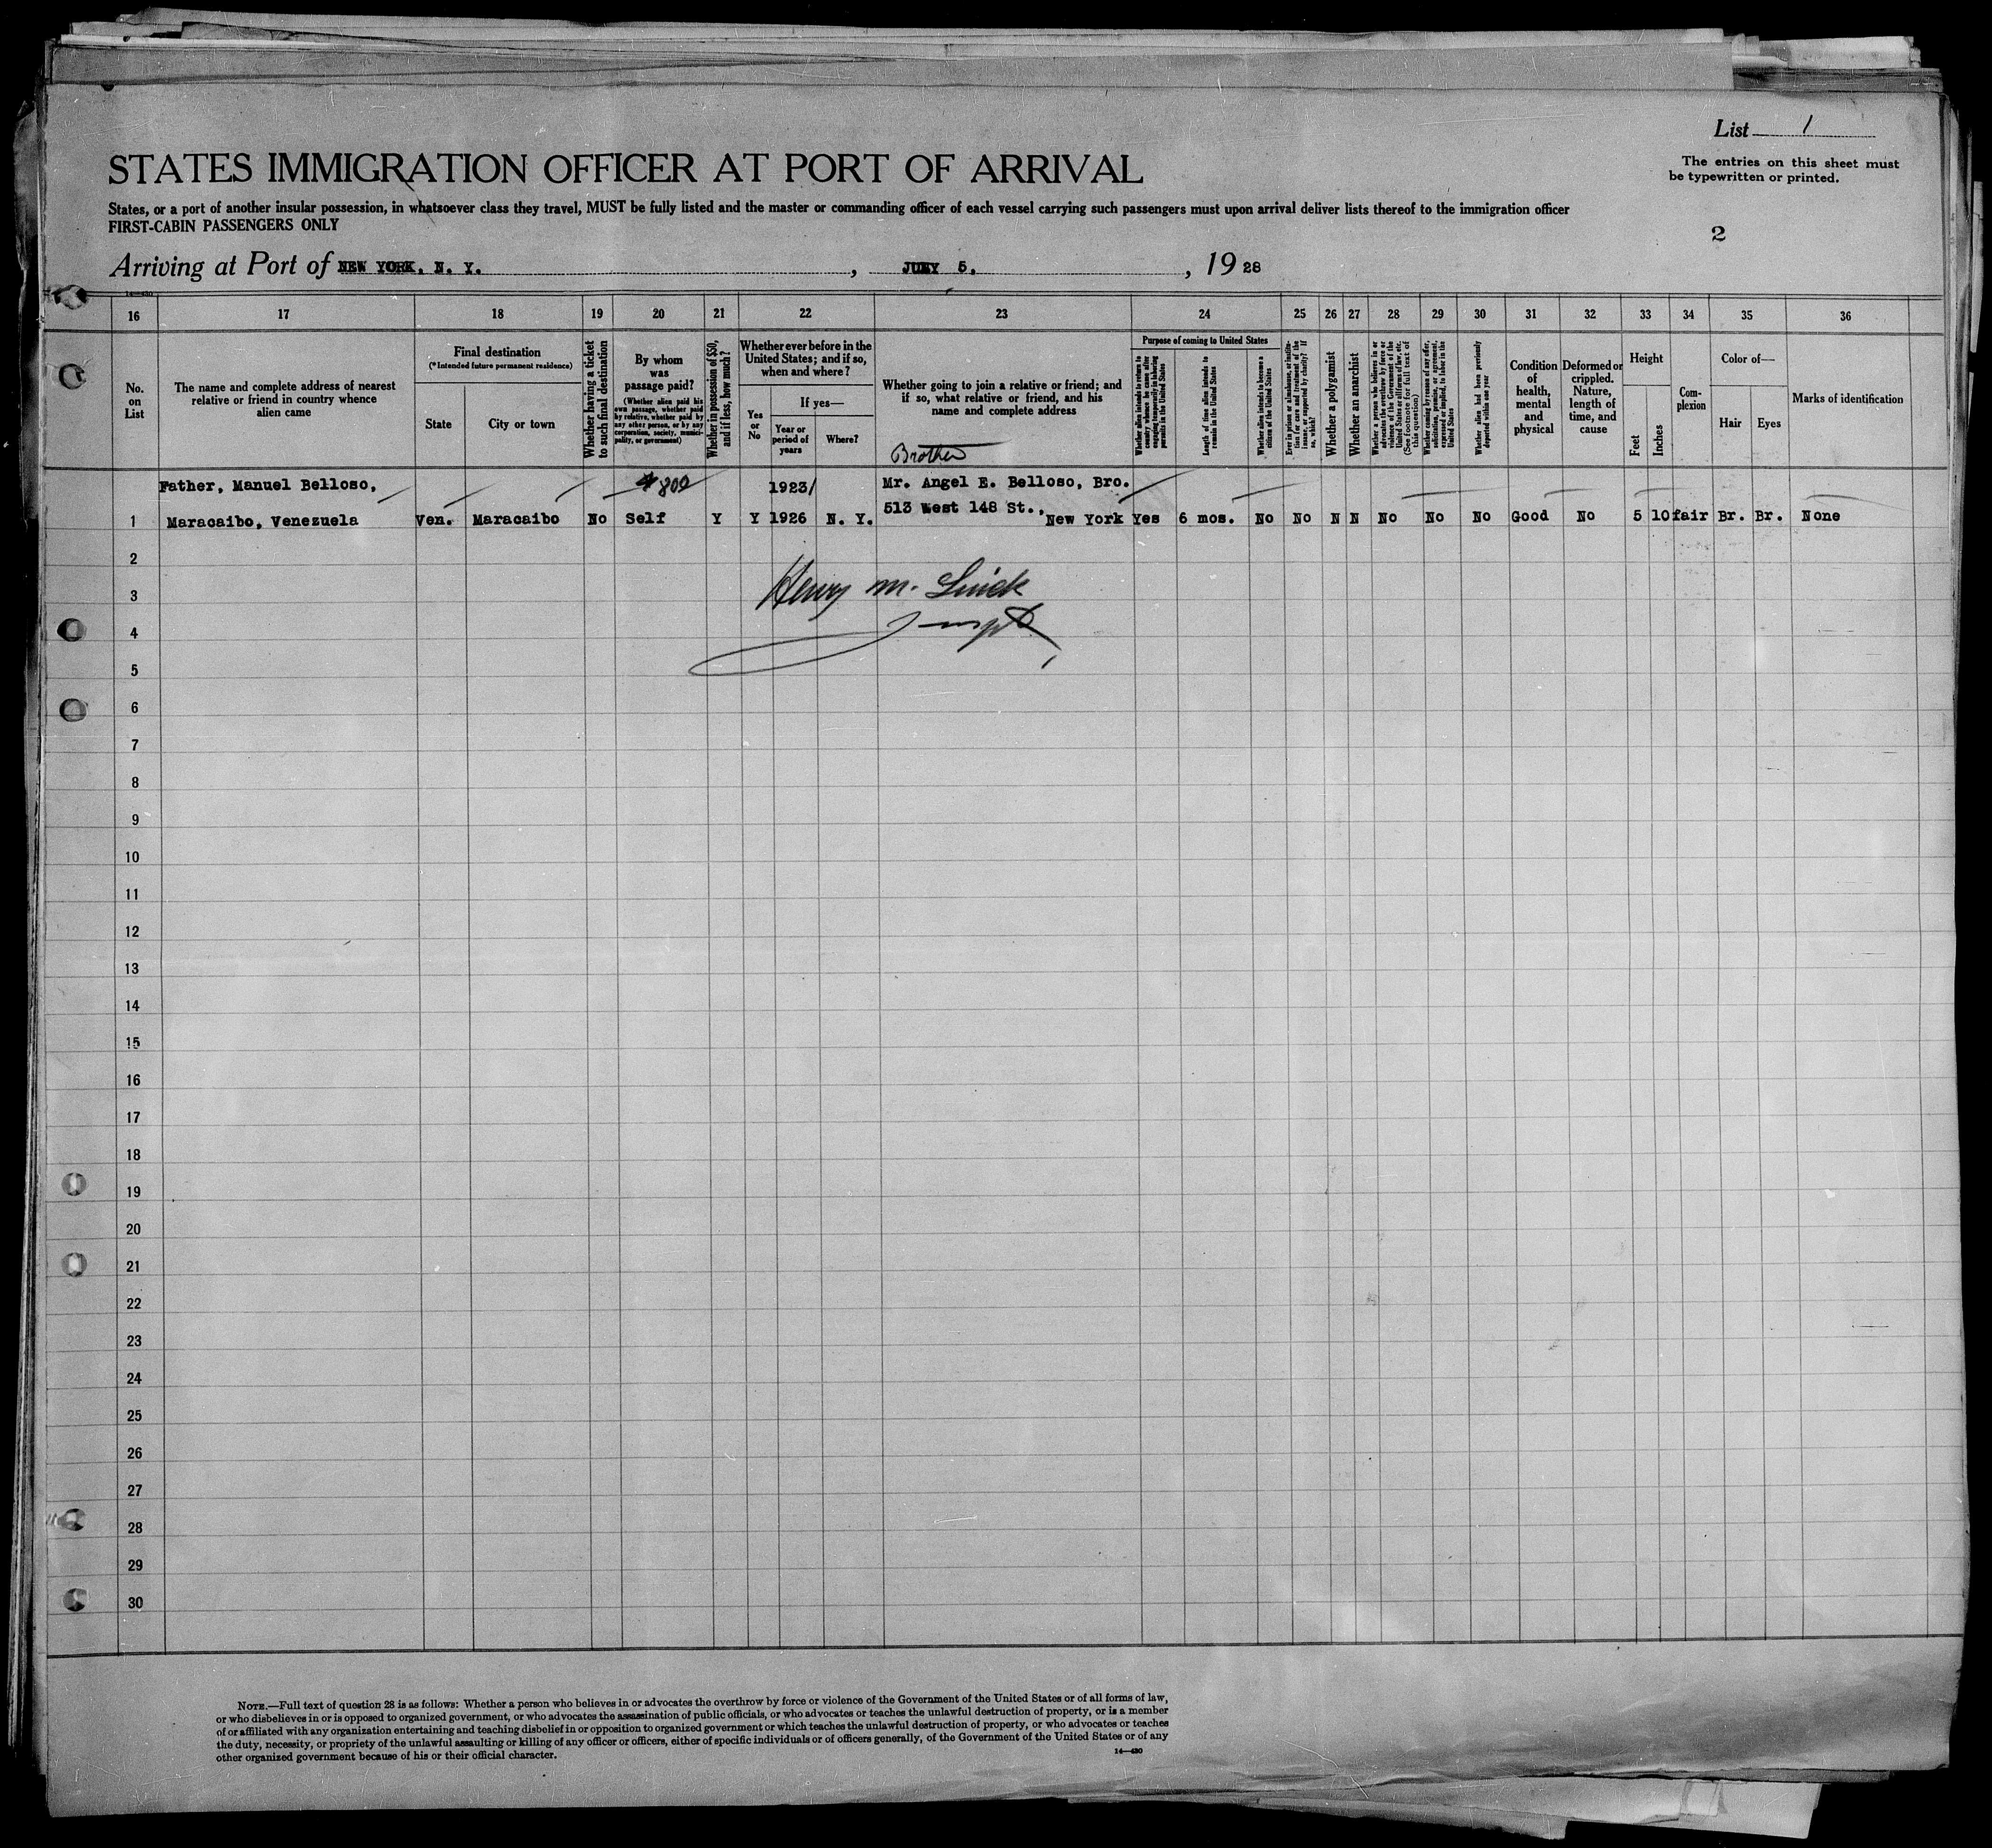 List 1
The entries on this sheet must
be typewritten or printed.
STATES IMMIGRATION OFFICER AT PORT OF ARRIVAL
States, or a port of another insular possession, in whatsoever class they travel, MUST be fully listed and the master or commanding officer of each vessel carrying such passengers must upon arrival deliver lists thereof to the immigration officer
FIRST-CABIN PASSENGERS ONLY
2
Arriving at Port of NEW YORK, N. Y. , 5, , 19 28
14—430
16 17 18 19 20 21 22 23 24 25 26 27 28 29 30 31 32 33 34 35 36
No. on List
The name and complete address of nearest
relative or friend in country whence
alien came
Final destination
(*Intended future permanent residence)
State
City or town
Whether having a ticket
to such final destination
By whom
was
passage paid?
(Whether alien paid his
own passage, whether paid
by relative, whether paid by
any other person, or by any
corporation, society, munici-
pality, or government)
Whether in possession of $50,
and if less, how much?
Whether ever before in the
United States; and if so,
when and where?
Yes
or
No
If yes—
Year or
period of
years
Where?
Whether going to join a relative or friend; and
if so, what relative or friend, and his
name and complete address
Purpose of coming to United States
Whether alien intends to return to
country whence he came after
engaging temporarily in laboring
pursuits in the United States
Length of time alien intends to
remain in the United States
Whether alien intends to become a
citizen of the United States
Ever in prison or almshouse, or institu-
tion for care and treatment of the
insane, or supported by charity? If
so, which?
Whether a polygamist
Whether an anarchist
Whether a person who believes in or
advocates the overthrow by force or
violence of the Government of the
United States or all forms of law, etc.
(See footnote for full text of
this question)
Whether coming by reason of any offer,
solicitation, promise, or agreement,
expressed or implied, to labor in the
United States
Whether alien had been previously
deported within one year
Condition
of
health,
mental
and
physical
Deformed or
crippled.
Nature,
length of
time, and
cause
Height
Feet
Inches
Com-
plexion
Color of—
Hair
Eyes
Marks of identification
Brother
Father, Manuel Belloso, $800 1923/ Mr. Angel E. Belloso, Bro.
513 West 148 St.,
1 Maracaibo, Venezuela Ven. Maracaibo No Self Y Y 1926 N. Y. New York Yes 6 mos. No No N N No No No Good No 5 10 fair Br. Br. None
2
Henry M.
3
4
5
6
7
8
9
10
11
12
13
14
15
16
17
18
19
20
21
22
23
24
25
26
27
28
29
30
NOTE.—Full text of question 28 is as follows: Whether a person who believes in or advocates the overthrow by force or violence of the Government of the United States or of all forms of law,
or who disbelieves in or is opposed to organized government, or who advocates the assassination of public officials, or who advocates or teaches the unlawful destruction of property, or is a member
of or affiliated with any organization entertaining and teaching disbelief in or opposition to organized government or which teaches the unlawful destruction of property, or who advocates or teaches
the duty, necessity, or propriety of the unlawful assaulting or killing of any officer or officers, either of specific individuals or of officers generally, of the Government of the United States or of any
other organized government because of his or their official character.
14—430